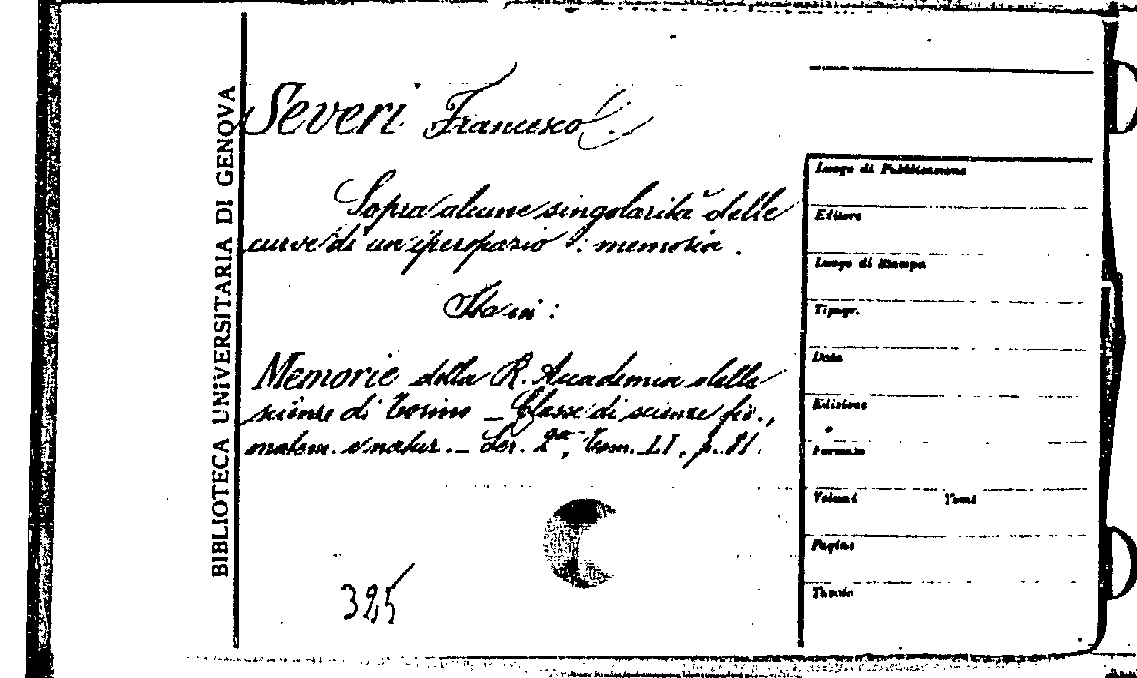 BIBLIOTECA UNIVERSITARIA DI GENOVA
Severi Francesco
Sopra alcune singolarità delle
curve di un iperspazio : memoria .
Sta in :
Memorie della R. Accademia delle
scienze di Torino _ Classe di scienze fis.,
matem. e natur. _ Ser. 2ª, Tom. LI, p. 81.
325
Luogo di Pubblicazione
Editore
Luogo di Stampa
Tipogr.
Data
Edizione
Formato
Volumi Tomi
Pagine